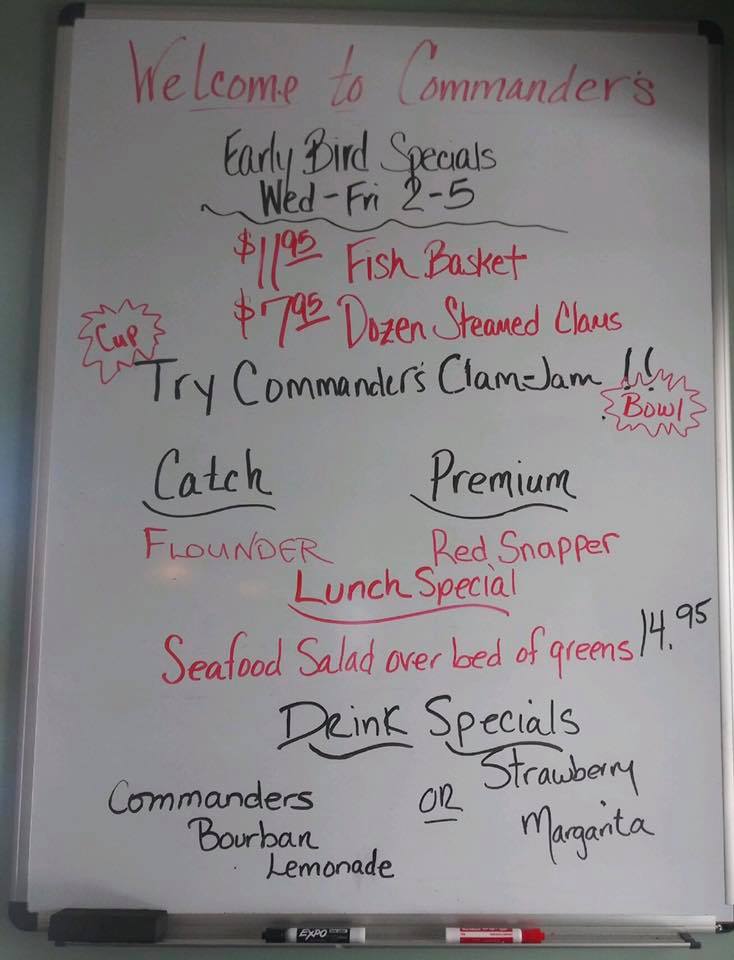 Welcome to Commander's
Early Bird Specials
Wed-Fri 2-5
$11.95 Fish Basket
$7.95 Dozen Steamed Clams
Cup
Try Commander's Clam-Jam !!
Bowl
Catch
Premium
FLOUNDER
Red Snapper
Lunch Special
Seafood Salad over bed of greens 14.95
Drink Specials
Commanders
Bourban
Lemonade
OR
Strawberry
Margarita
EXPO